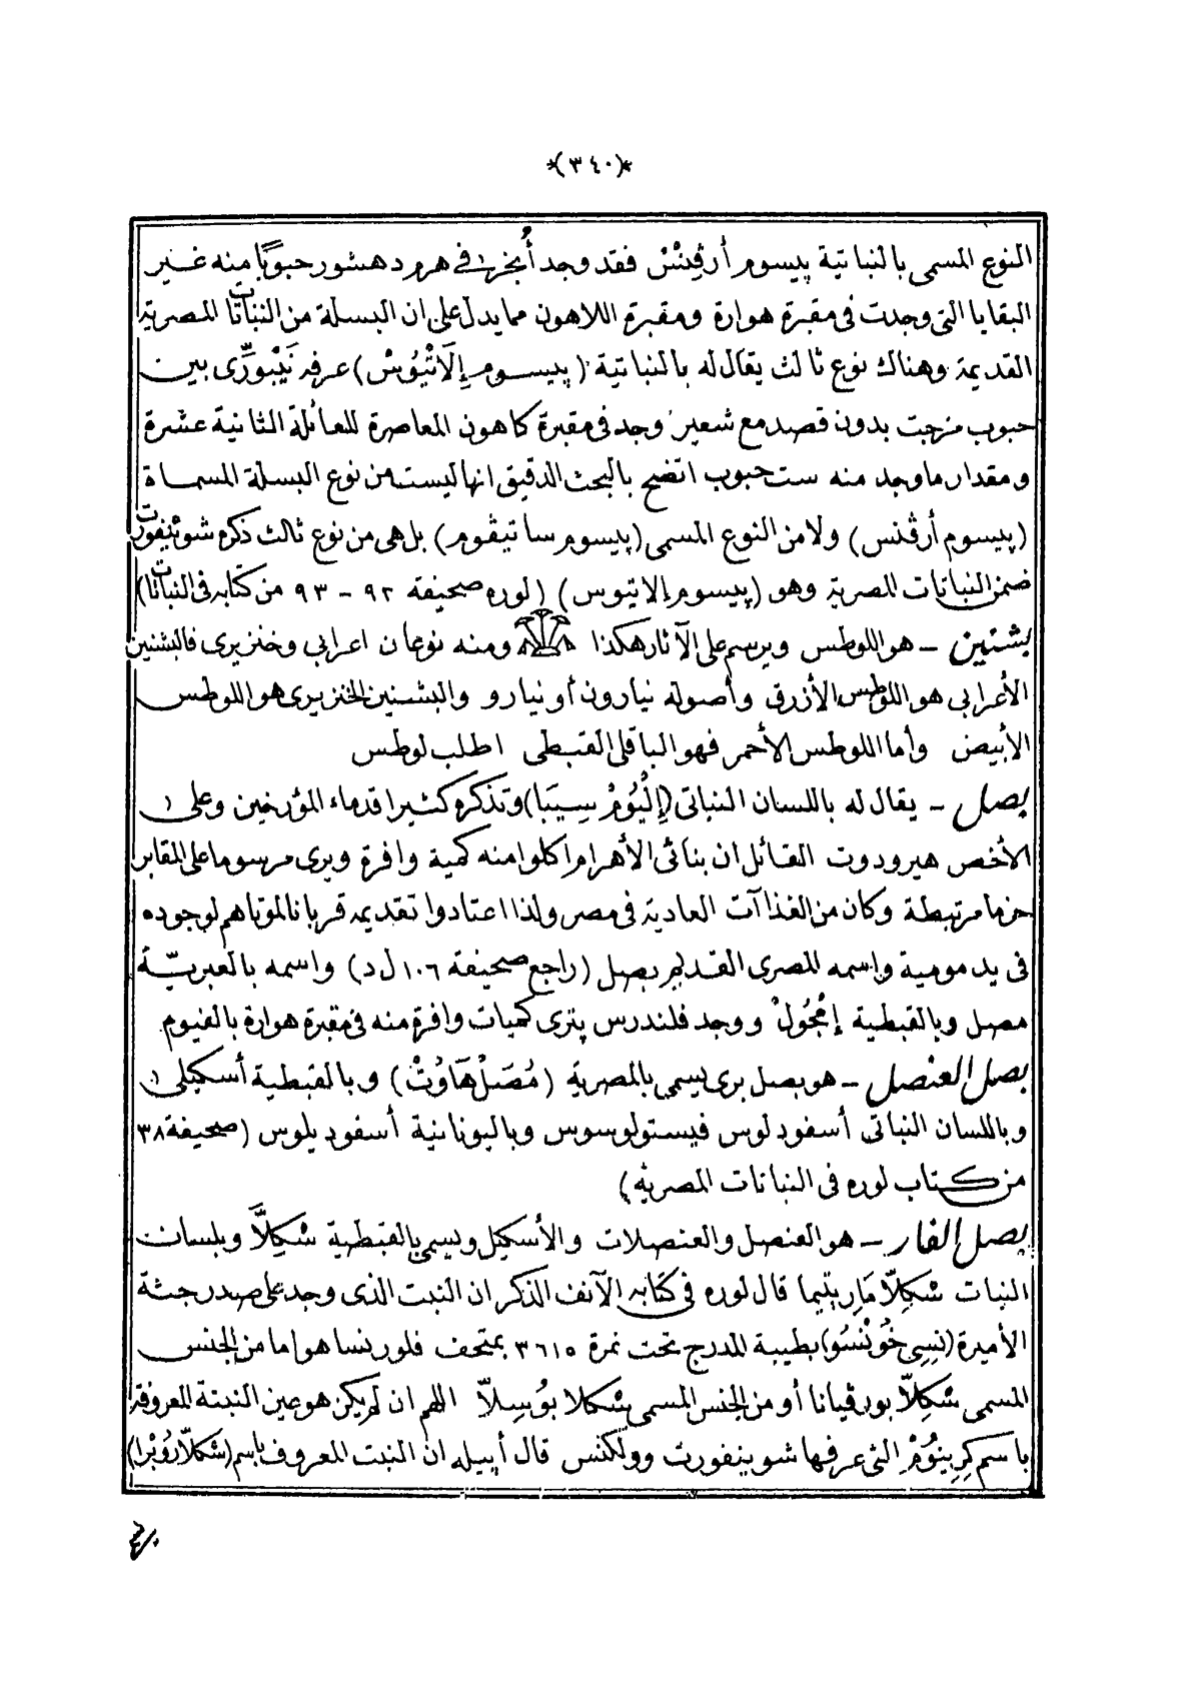 *(٣٤٠)*
النوع المسمى بالنباتية پيسوم أرڤِنْسْ فقد وجد أُبْخَرْ في هرم دهشور حبوبًا منه غير
البقايا التى وجدت فى مقبرة هوارة ومقبرة اللاهون مما يدل على ان البسلة من النباتات المصرية
القديمة وهناك نوع ثالث يقال له بالنباتية (پيسوم إِلَاتْيُوسْ) عرفه نَيْبُورِّى بين
حبوب مزجت بدون قصد مع شعير وجد فى مقبرة كاهون المعاصرة للعائلة الثانية عشرة
ومقدار ما وجد منه ست حبوب اتضح بالبحث الدقيق انها ليست من نوع البسلة المسماة
(پيسوم أرڤنس) ولا من النوع المسمى (پيسوم ساتيڤوم) بل هى من نوع ثالث ذكره شوينفورت
ضمن النباتات المصرية وهو (پيسوم إلاتيوس) (لوره صحيفة ٩٢ - ٩٣ من كتابه فى النباتات)
بشنين - هو اللوطس ويرسم على الآثار هكذا ومنه نوعان اعرابي وخنزيرى فالبشنين
الأعرابي هو اللوطس الأزرق وأصوله نيارون أو نيارو والبشنين الخنزيرى هو اللوطس
الأبيض وأما اللوطس الأحمر فهو الباقلى القبطى اطلب لوطس
بصل - يقال له باللسان النباتى (إِلْيُومْ سِيپَا) وتذكره كثيرا قدماء المؤرخين وعلى
الأخص هيرودوت القائل ان بنائى الأهرام اكلوا منه كمية وافرة ويرى مرسوما على المقابر
حزما مرتبطة وكان من الغذاآت العادية فى مصر ولذا اعتادوا تقديمه قربانا لموتاهم لوجوده
فى يد مومية واسمه المصرى القديم بصل (راجع صحيفة ١٠٦ ل د) واسمه بالعبريّة
مصل وبالقبطية إِمْجُولْ ووجد فلندرس پترى كميات وافرة منه فى مقبرة هوارة بالفيوم
بصل العنصل - هو بصل برى يسمى بالمصرية (مُصَلْ هَاوُتْ) وبالقبطية أسكيلى
وباللسان النباتى أسفودلوس فيستولوسوس وباليونانية أسفوديلوس (صحيفة ٣٨
من كتاب لوره فى النباتات المصرية)
بصل الفار - هو العنصل والعنصلات والأسكيل ويسمى بالقبطية شكِلاَّ وبلسان
النبات شكِلاّ مَارِيتِيما قال لوره فى كتابه الآنف الذكر ان النبت الذى وجد على صدر جثة
الأميرة (نِسِى خُونْسُو) بطيبة المدرج تحت نمرة ٣٦١٥ بمتحف فلورنسا هو إما من الجنس
المسمى شكِلاّ بورقيانا أو من الجنس المسمى شكلا بوُسِلاّ اللهم ان لم يكن هو عين النبتة المعروفة
باسم كِرِينُومْ التى عرفها شوينفورت وولكنس قال أپيله ان النبت المعروف باسم (شكلاّ رُوبْرا)